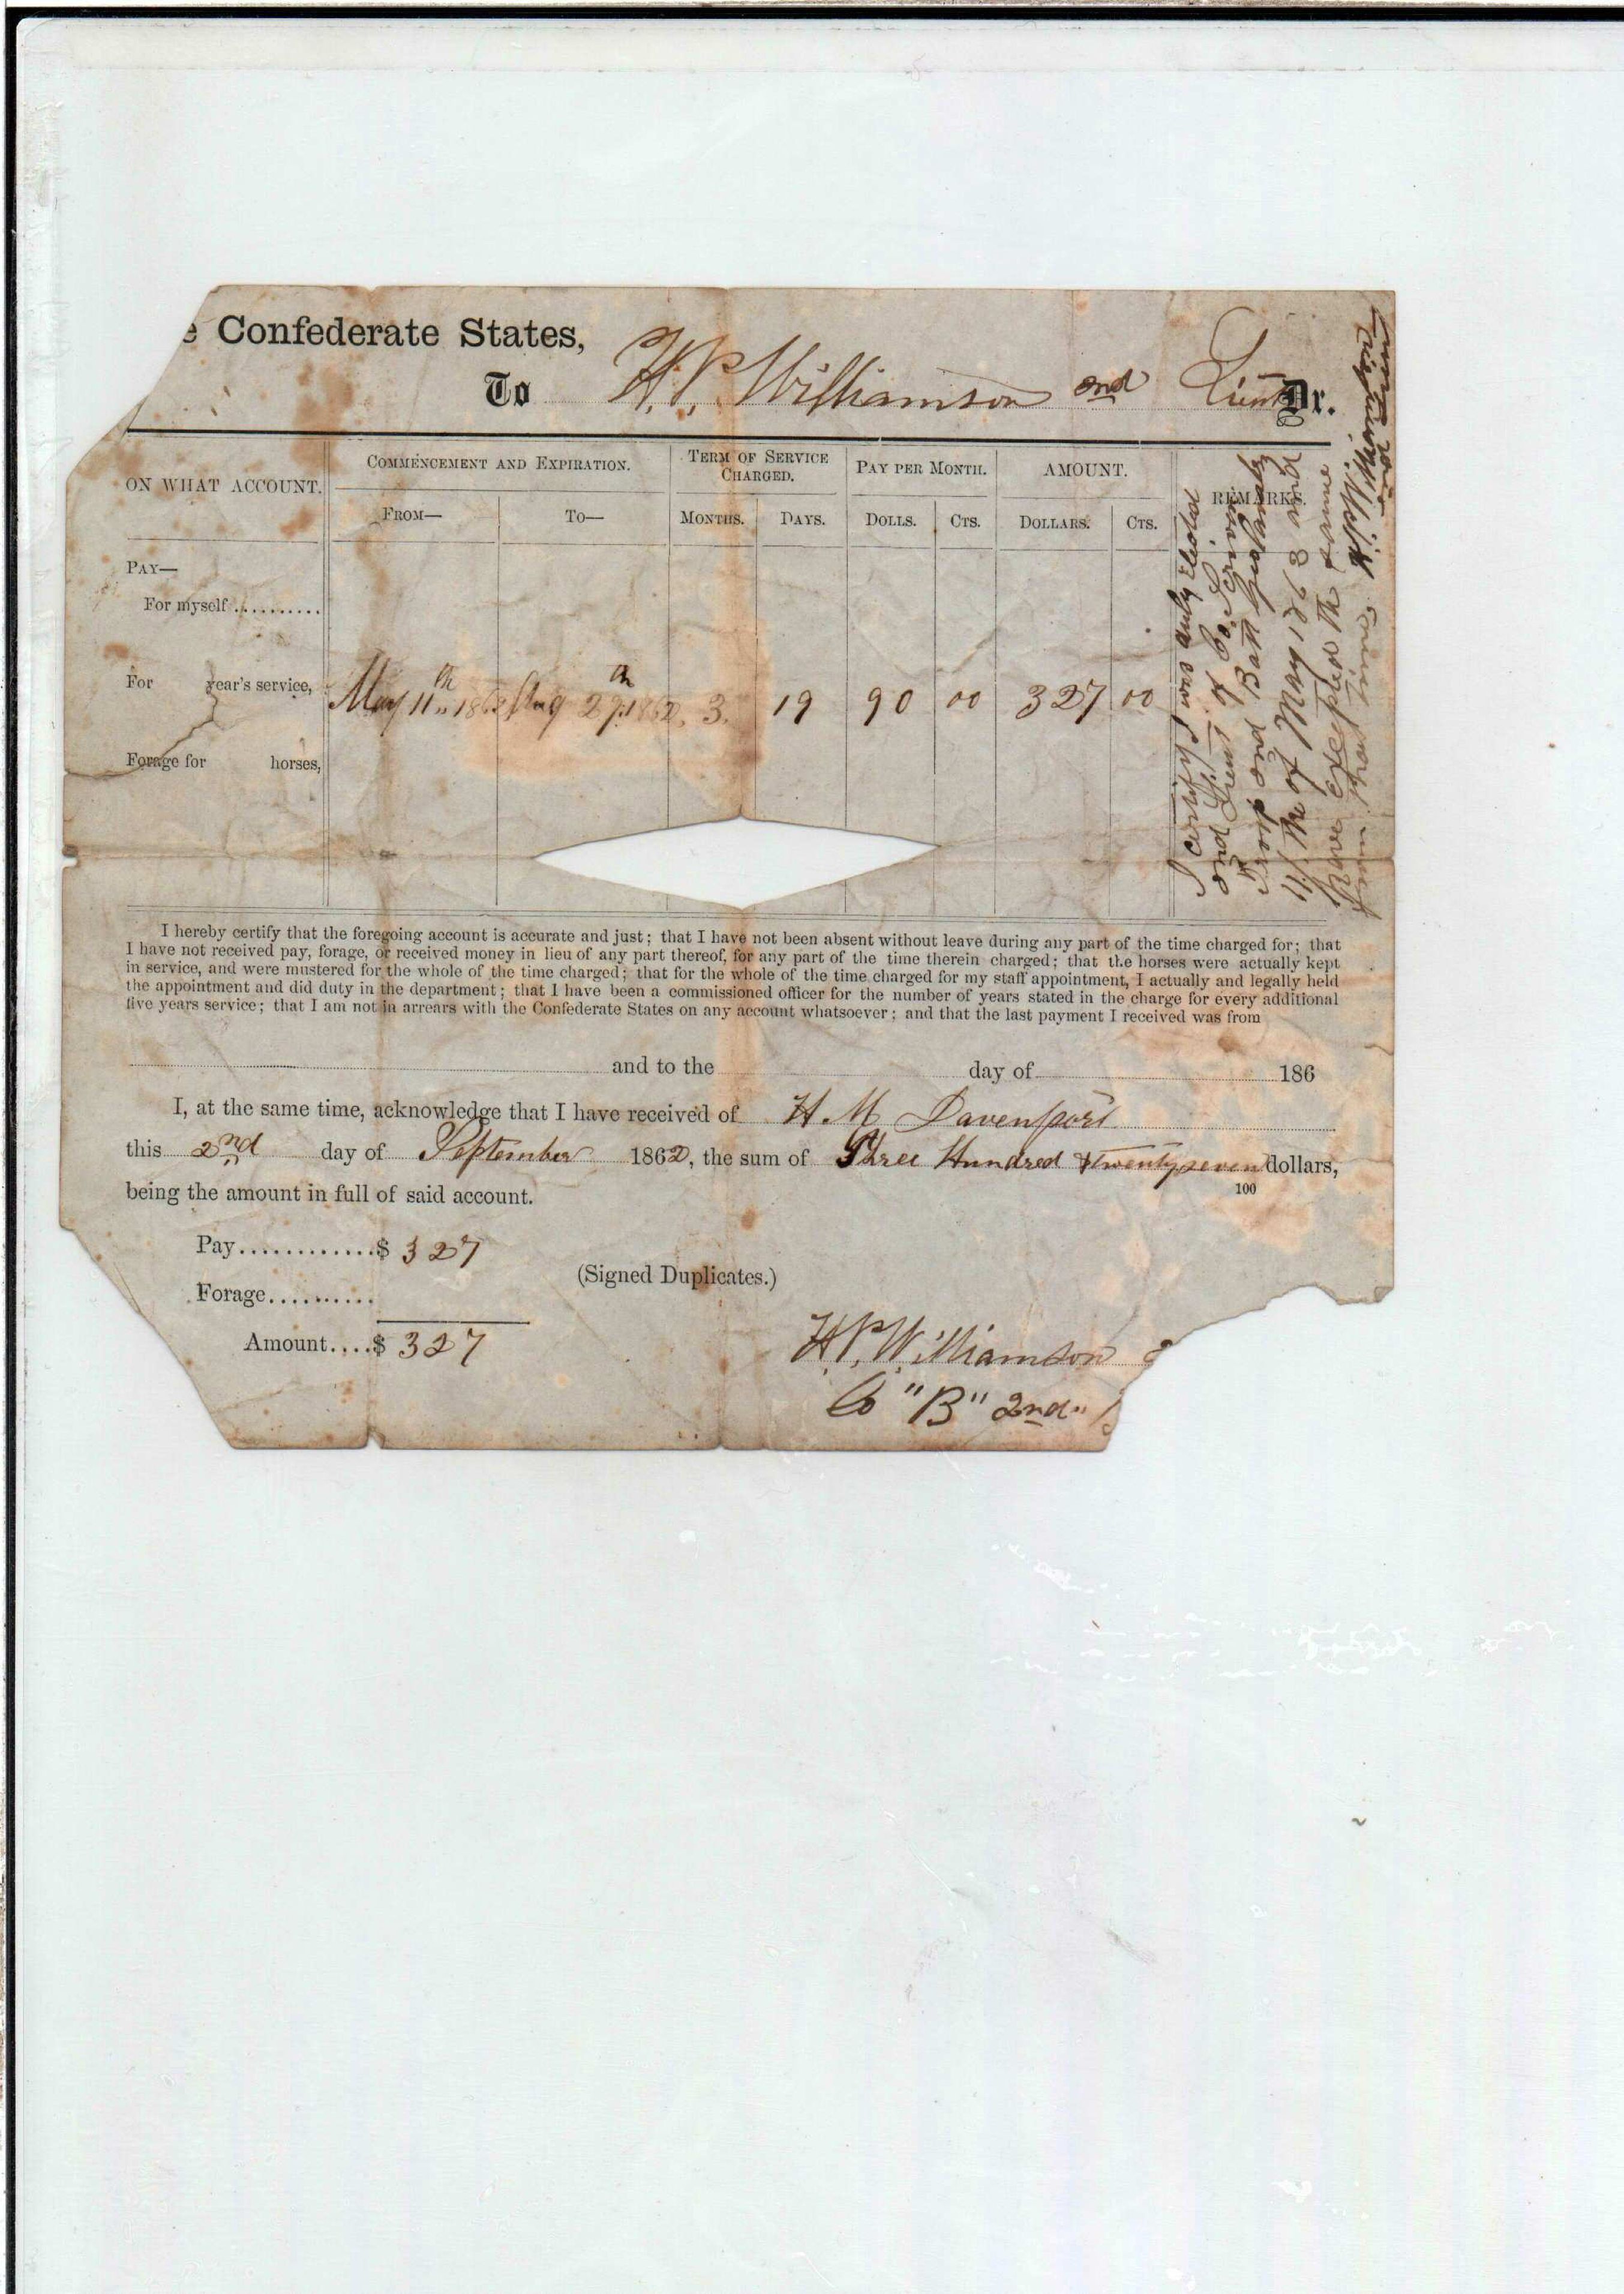 e Confederate States,
To H. P. Williamson 2nd Lieut Dr.
ON WHAT ACCOUNT. COMMENCEMENT AND EXPIRATION. TERM OF SERVICE CHARGED. PAY PER MONTH. AMOUNT. REMARKS.
FROM— TO— MONTHS. DAYS. DOLLS. CTS. DOLLARS. CTS.
PAY—
For myself..........
For year's service, May 11th 1862 Aug 29th 1862. 3. 19 90 00 327 00
Forage for horses,
I certify I was duly Elected
2nd Lieut of Co.
2nd Batt
11 th of May 1862 and
have excepted the same
I hereby certify that the foregoing account is accurate and just; that I have not been absent without leave during any part of the time charged for; that
I have not received pay, forage, or received money in lieu of any part thereof, for any part of the time therein charged; that the horses were actually kept
in service, and were mustered for the whole of the time charged; that for the whole of the time charged for my staff appointment, I actually and legally held
the appointment and did duty in the department; that I have been a commissioned officer for the number of years stated in the charge for every additional
five years service; that I am not in arrears with the Confederate States on any account whatsoever; and that the last payment I received was from
and to the day of 186
I, at the same time, acknowledge that I have received of H M Davenport
this 2nd day of September 1862, the sum of Three Hundred & twenty seven dollars,
100
being the amount in full of said account.
Pay............$ 327
(Signed Duplicates.)
Forage..........
Amount....$ 327
H. P. Williamson
Co "B" 2nd